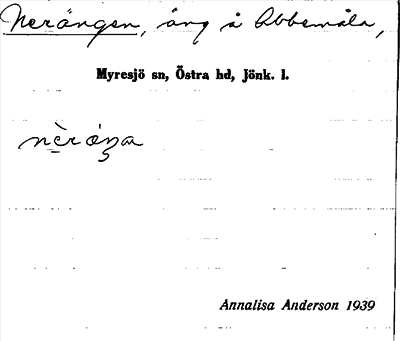 Nerängen, äng å Abbemåla,
Myresjö sn, Östra hd, Jönk. l.
Annalisa Anderson 1939